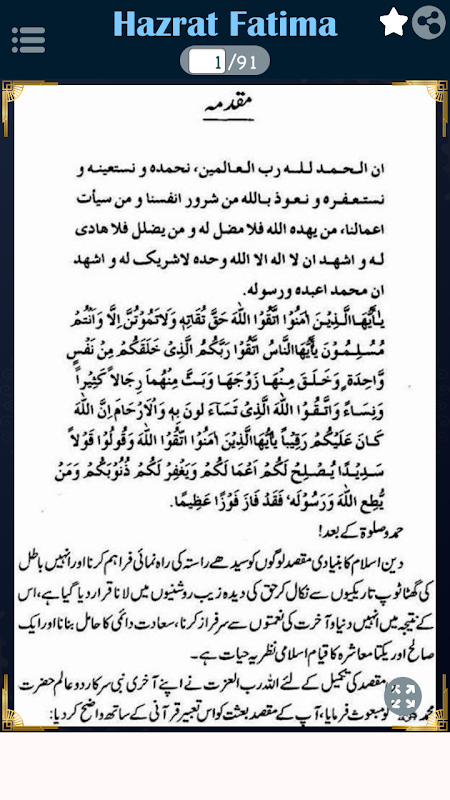 Hazrat Fatima
1/91
مقدمہ
ان الـحـمـد لـلـه رب الـعـالمين، نحمده و نستعينه و
نستـعـفـره و نـعـوذ بـالله من شرور انفسنا و من سيأت
اعمالنا، من يهده الله فلا مضل له و من يضلل فلا هادى
لـه و اشهـد ان لا اله الا الله وحده لاشريک له و اشهد
ان محمد اعبده ورسوله.
يٰٓاَيُّهَا الَّذِيْنَ اٰمَنُوْا اتَّقُوْا اللّٰهَ حَقَّ تُقَاتِهٖ وَلَا تَمُوْتُنَّ اِلَّا وَاَنْتُمْ
مُسْلِمُوْنَ يٰٓاَيُّهَا النَّاسُ اتَّقُوْا رَبَّكُمُ الَّذِىْ خَلَقَكُمْ مِنْ نَفْسٍ
وَّاحِدَةٍ وَّخَلَقَ مِنْهَا زَوْجَهَا وَبَثَّ مِنْهُمَا رِجَالاً كَثِيْرًا
وَنِسَاءً وَاتَّقُوْا اللّٰهَ الَّذِىْ تَسَآءَ لُونَ بِهٖ وَالْاَرْحَامَ اِنَّ اللّٰهَ
كَانَ عَلَيْكُمْ رَقِيْبًا يٰٓاَيُّهَا الَّذِيْنَ اٰمَنُوْا اتَّقُوْا اللّٰهَ وَقُوْلُوْا قَوْلاً
سَدِيْدًا يُصْلِحْ لَكُمْ اَعْمَا لَكُمْ وَيَغْفِرْ لَكُمْ ذُنُوْبَكُمْ وَمَنْ
يُّطِعِ اللّٰهَ وَرَسُوْلَهٗ فَقَدْ فَازَ فَوْزًا عَظِيْمًا.
حمد و صلوۃ کے بعد!
دین اسلام کا بنیادی مقصد لوگوں کو سیدھے راستہ کی راہ نمائی فراہم کرنا اور انہیں باطل
کی گھٹا ٹوپ تاریکیوں سے نکال کر حق کی دیدہ زیب روشنیوں میں لانا قرار دیا گیا ہے، اس
کے نتیجہ میں انہیں دنیا و آخرت کی نعمتوں سے سرفراز کرنا، سعادت دائمی کا حامل بنانا اور ایک
صالح اور یکتا معاشرہ کا قیام اسلامی نظریہ حیات ہے۔
مقصد کی تکمیل کے لئے اللہ رب العزت نے اپنے آخری نبی سرکار دو عالم حضرت
محمد کو مبعوث فرمایا، آپ کے مقصد بعثت کو اس تعبیر قرآنی کے ساتھ واضح کر دیا: